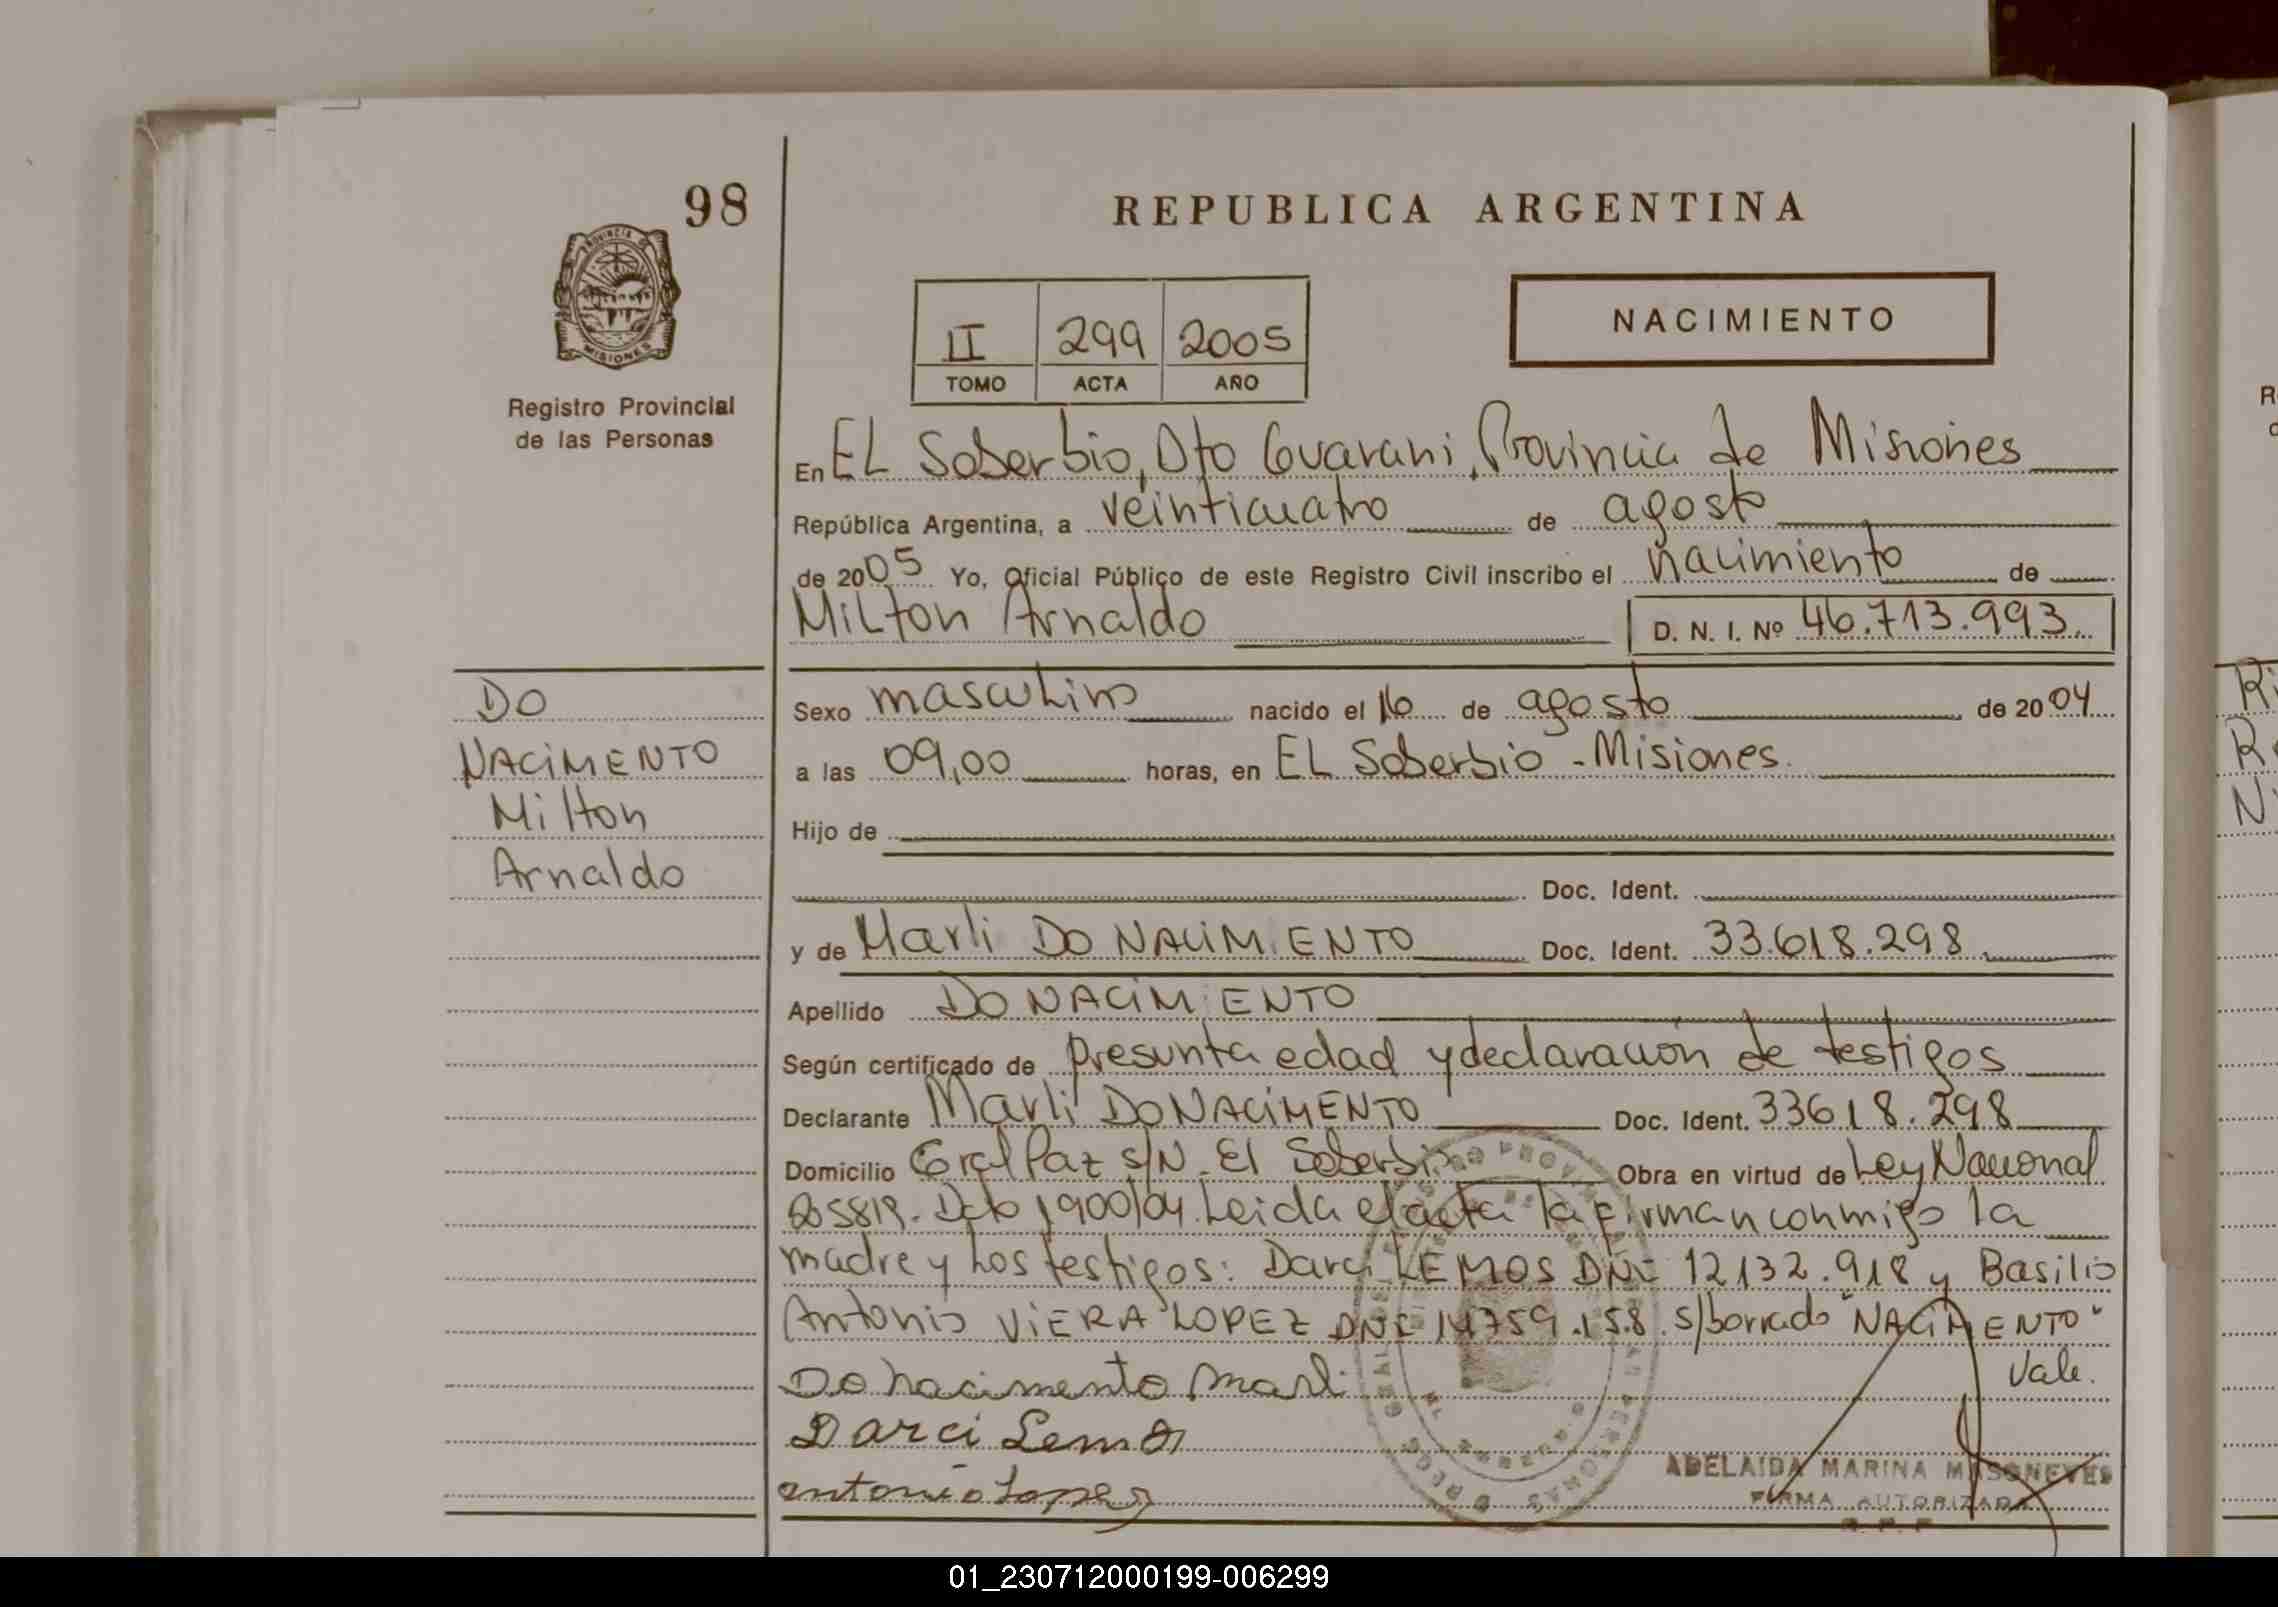 98
REPUBLICA ARGENTINA
PROVINCIA DE
MISIONES
II 299 2005
TOMO ACTA AÑO
NACIMIENTO
Registro Provincial
de las Personas
En EL Soberbio, Dto Guarani, Provincia de Misiones
República Argentina, a veinticuatro de agosto
de 2005 Yo, Oficial Público de este Registro Civil inscribo el nacimiento de
Milton Arnaldo D. N. I. Nº 46.713.993
DO
NACIMENTO
Milton
Arnaldo
Sexo masculino nacido el 16 de agosto de 2004
a las 09,00 horas, en EL Soberbio - Misiones.
Hijo de
Doc. Ident.
y de Marli DO NACIMENTO Doc. Ident. 33.618.298
Apellido DO NACIMENTO
Según certificado de presunta edad y declaración de testigos
Declarante Marli DO NACIMENTO Doc. Ident. 33618.298
Domicilio Gral Paz s/N - El Soberbio Obra en virtud de Ley Nacional
25819. Dcto 1900/04. Leida el acta la firman conmigo la
madre y los testigos: Darci LEMOS DNI 12132.918 y Basilio
Antonio VIERA LOPEZ DNI 14759.158. s/borrado "NACIMENTO"
Vale.
Do nacimento Marli
Darci Lemos
antonio Lopez
ADELAIDA MARINA
FIRMA AUTORIZADA
R. P. P.
01_230712000199-006299